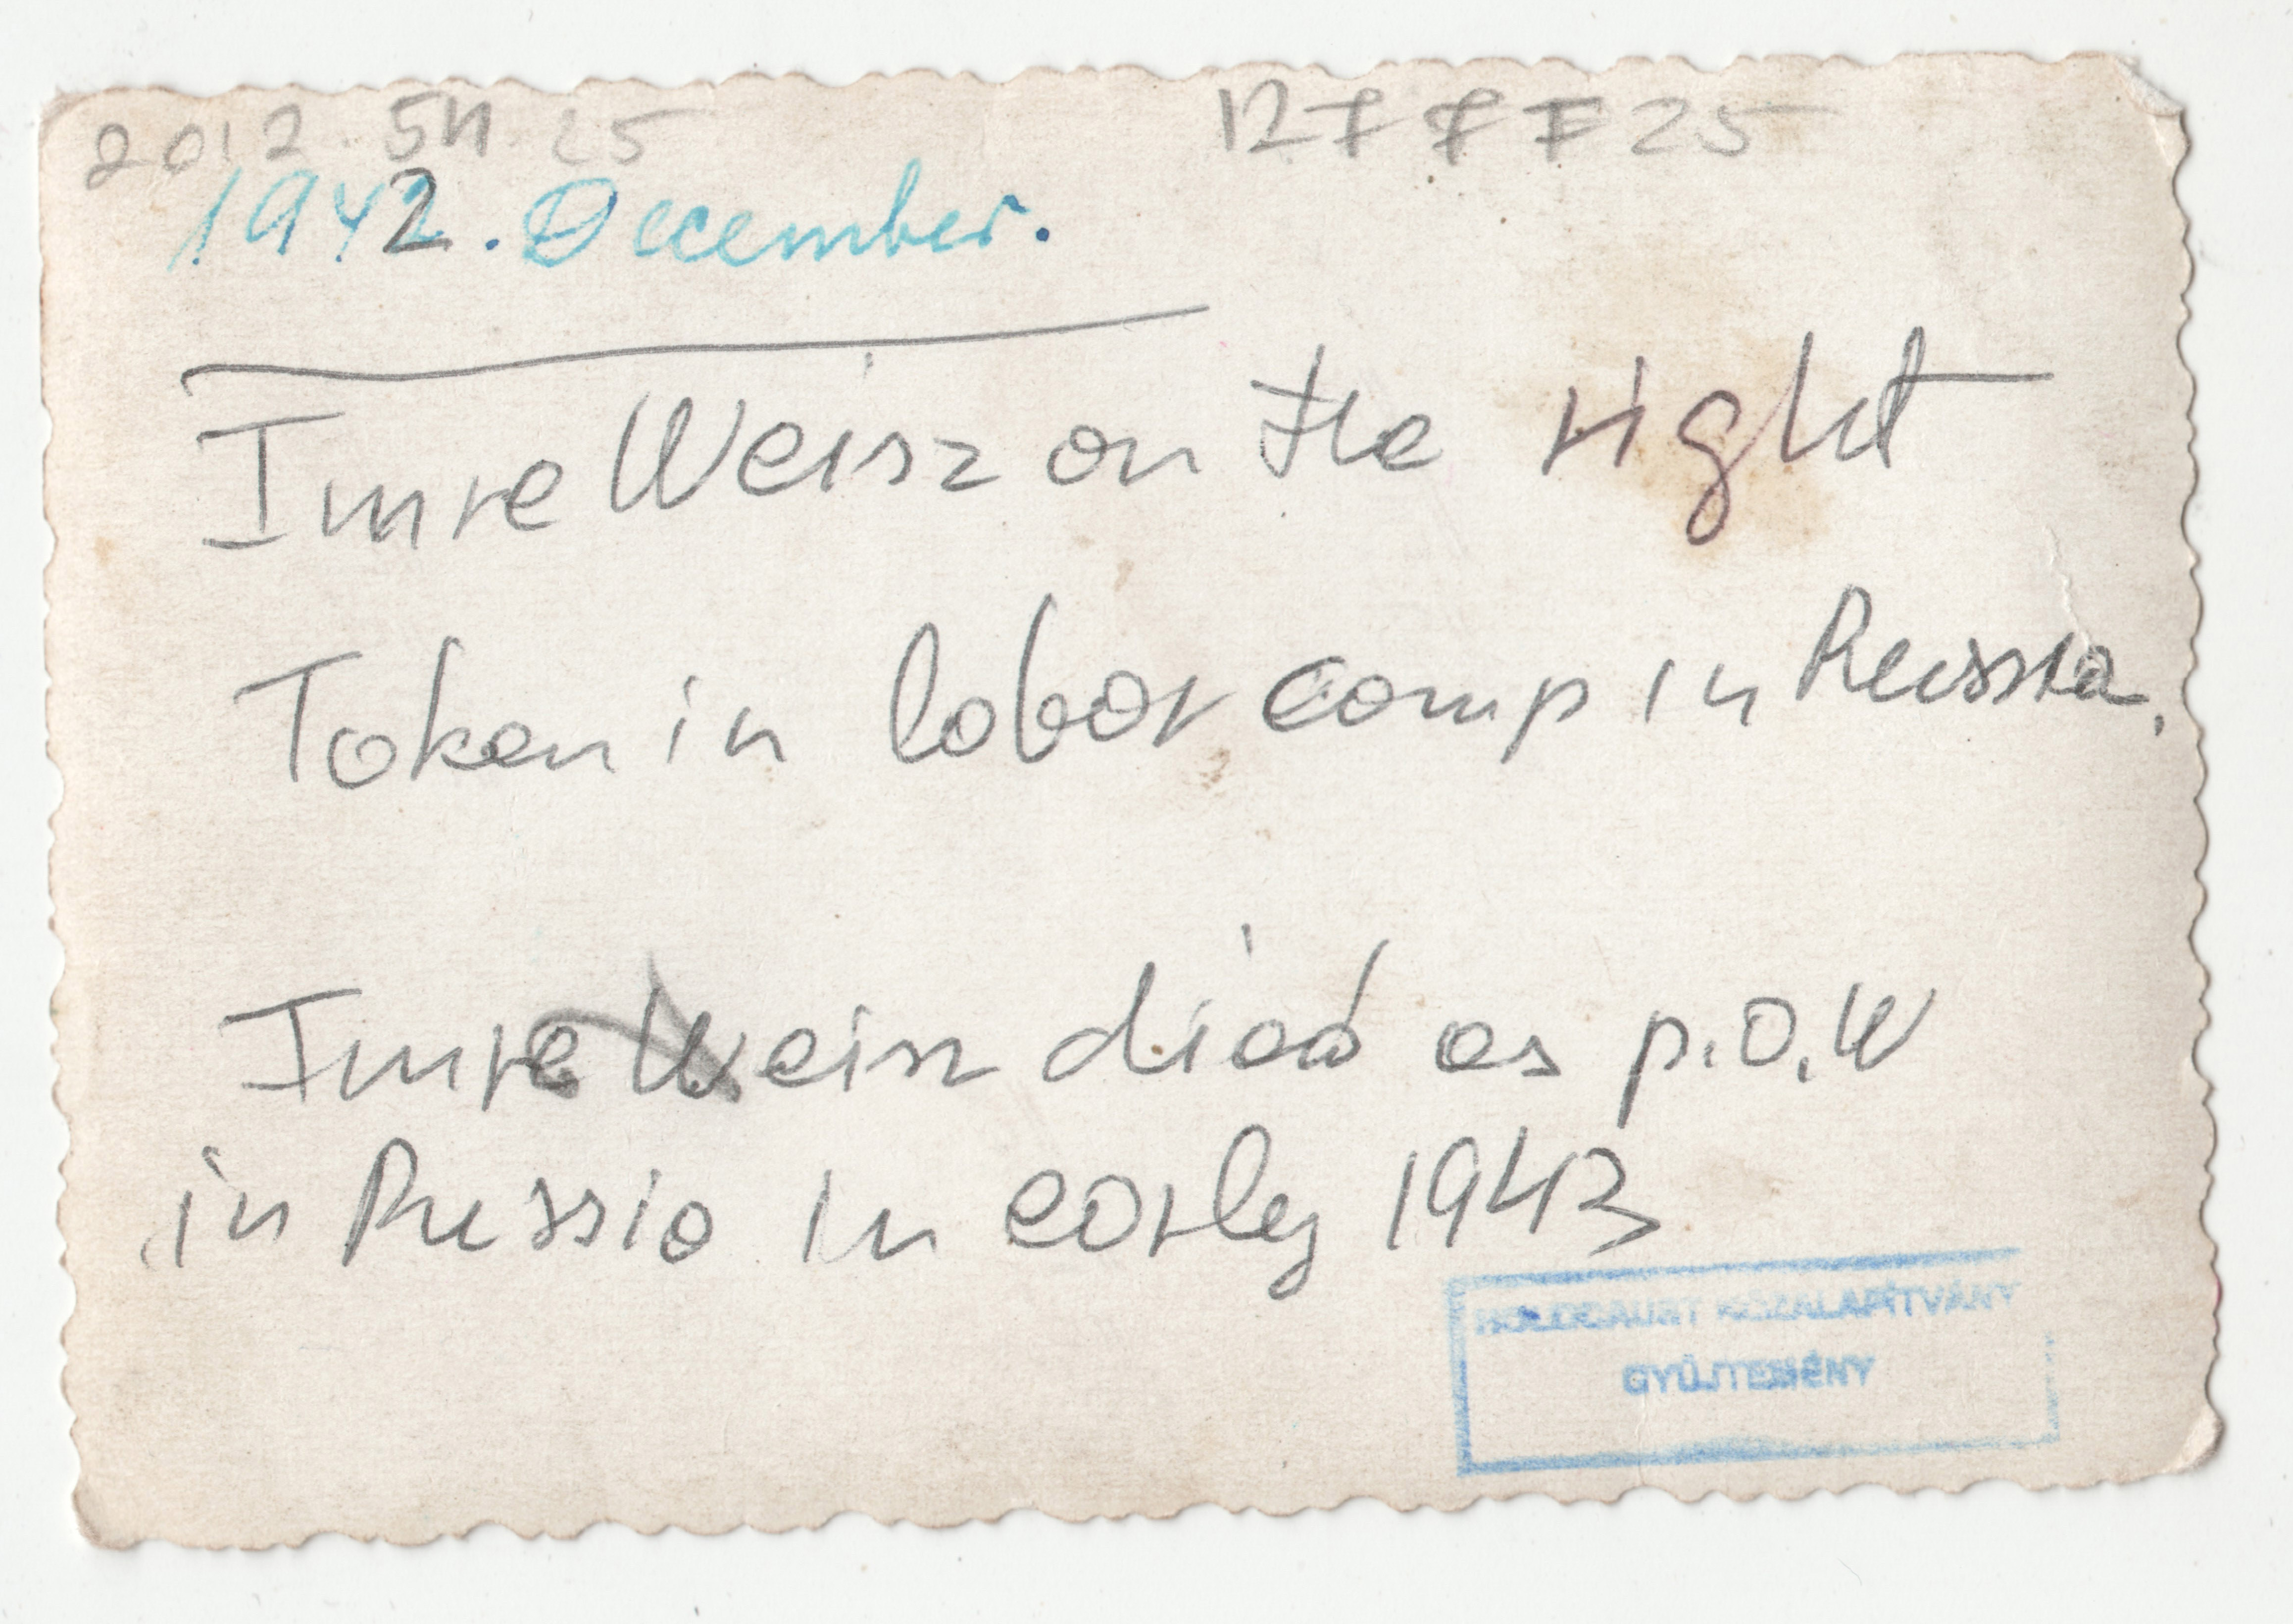 2012.54.25 127 7 F 25
1942. December.
Imre Weisz on the right
Taken in labor camp in Russia.
Imre Weisz died as p.o.W
in Russia in early 1943
HOLOCAUST KÖZALAPÍTVÁNY
GYŰJTEMÉNY